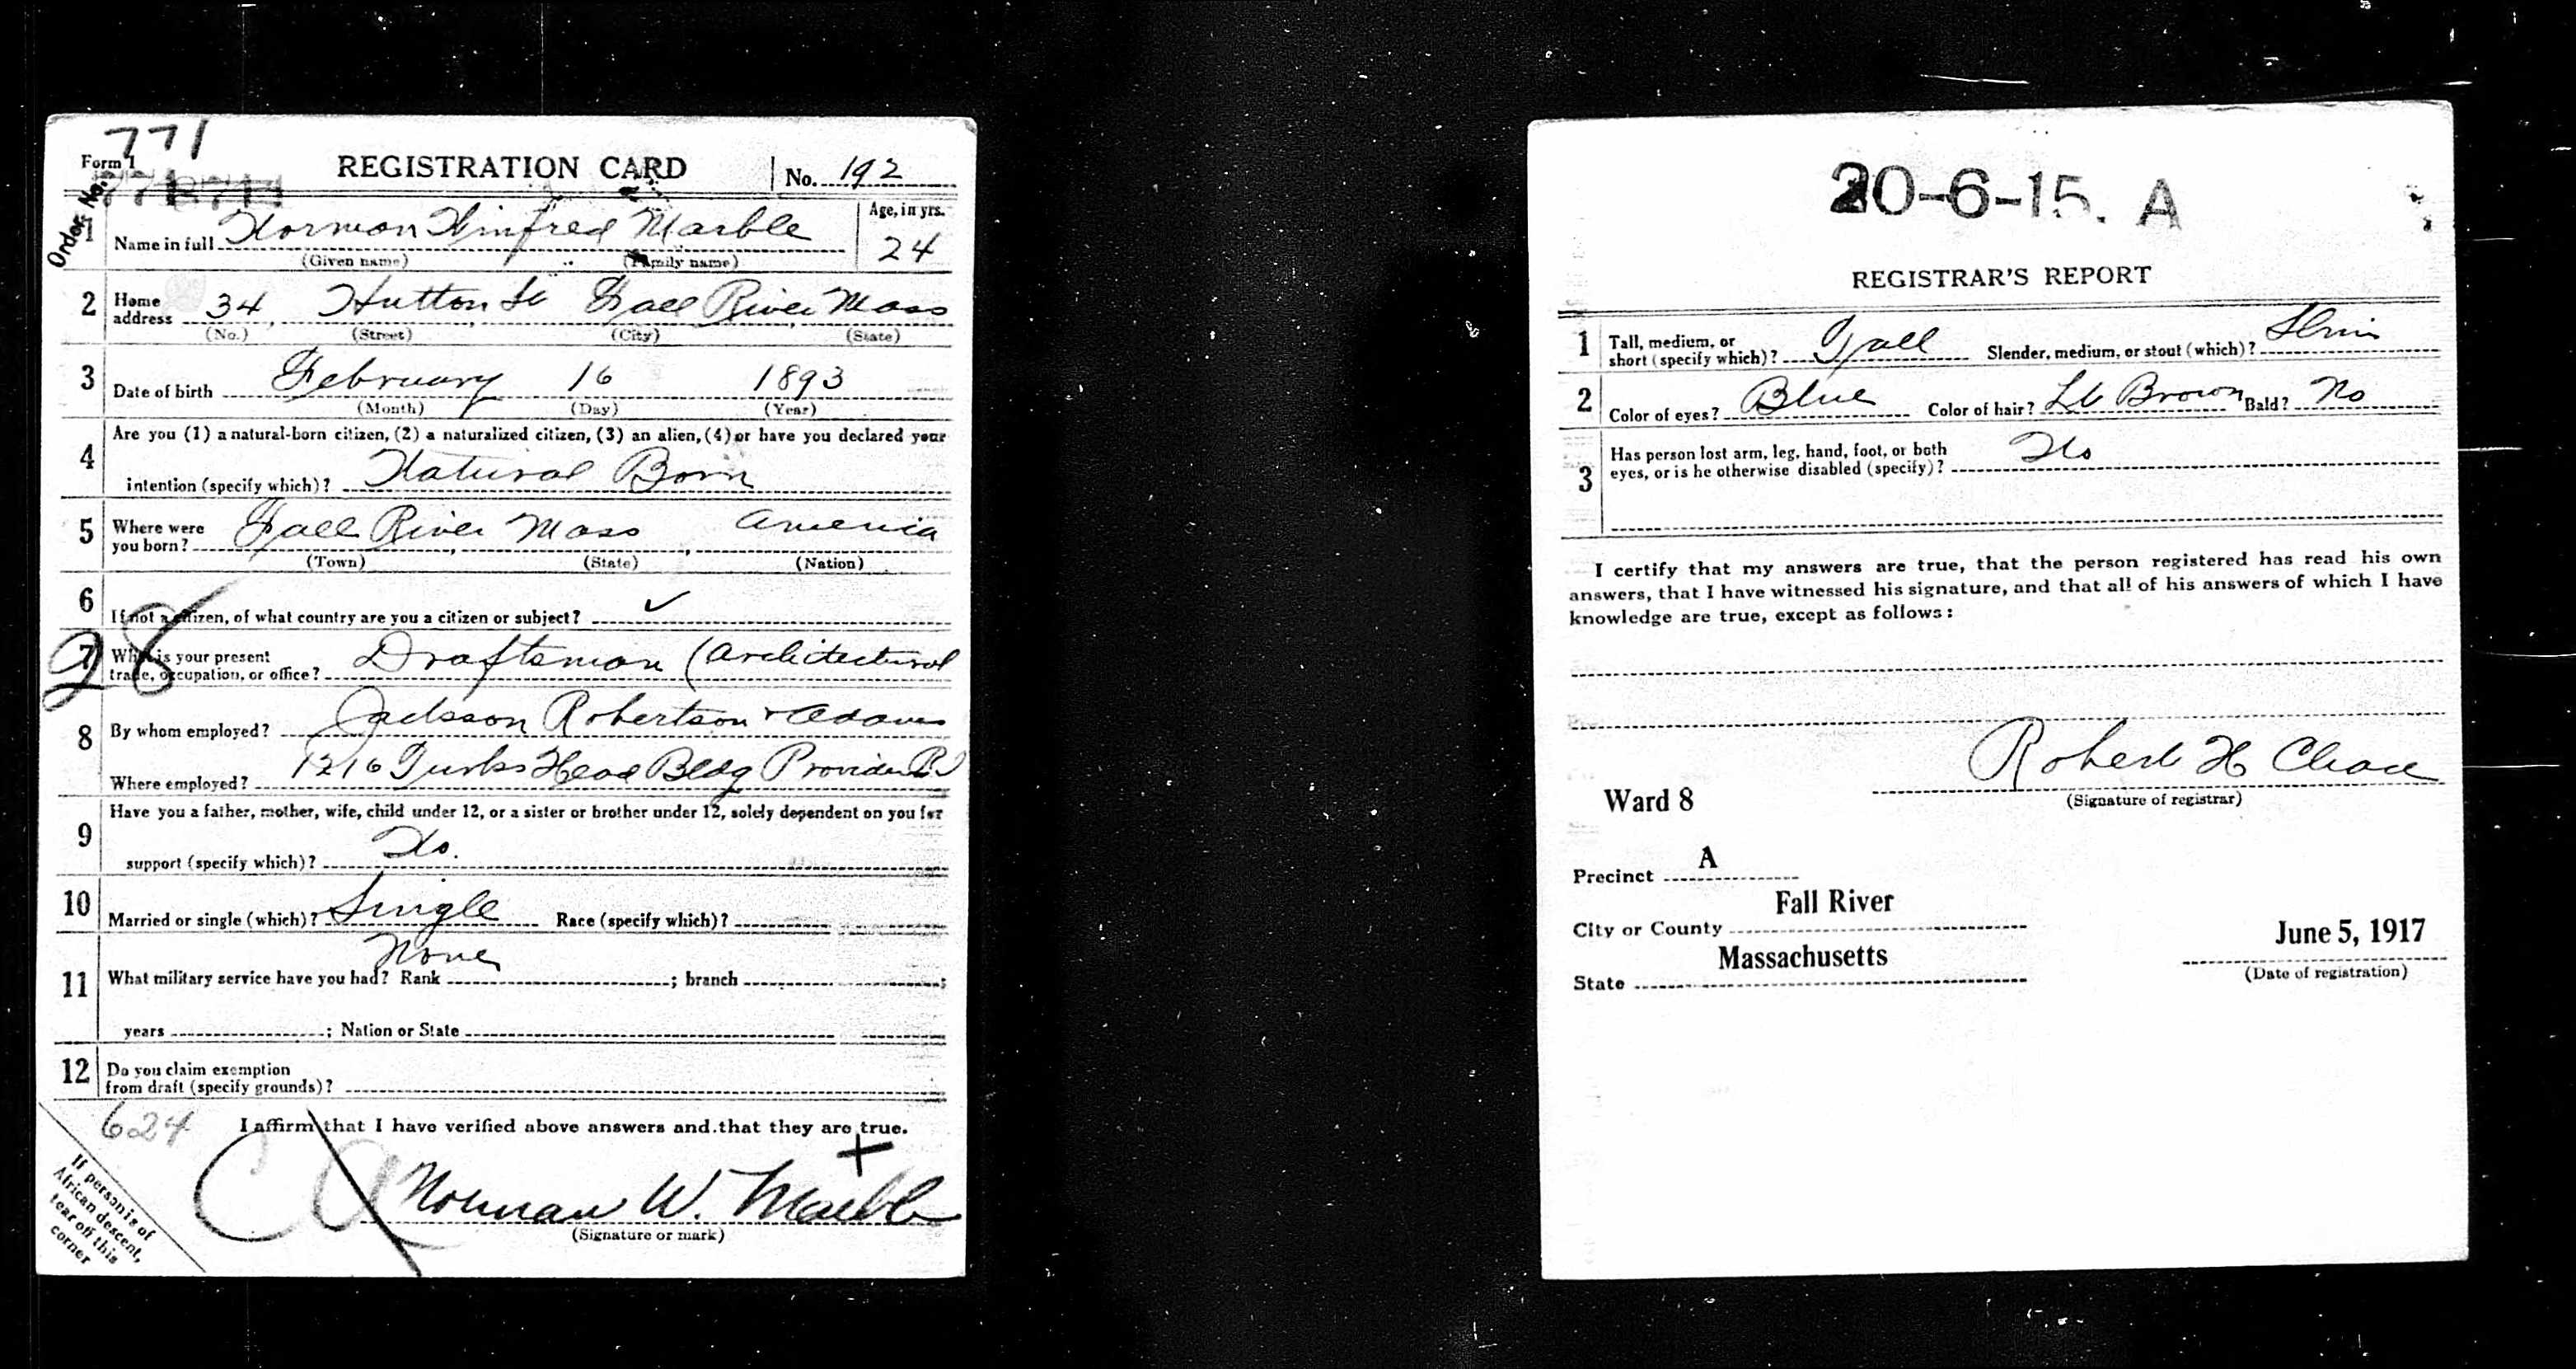 771
Form 1 REGISTRATION CARD No. 192
Order No.
1 Name in full Norman Winfred Marble Age, in yrs. 24
(Given name) (Family name)
2 Home address 34 Hutton St Fall River Mass
(No.) (Street) (City) (State)
3 Date of birth February 16 1893
(Month) (Day) (Year)
4 Are you (1) a natural-born citizen, (2) a naturalized citizen, (3) an alien, (4) or have you declared your
intention (specify which)? Natural Born
5 Where were you born? Fall River Mass America
(Town) (State) (Nation)
6 If not a citizen, of what country are you a citizen or subject? ✓
28
7 What is your present trade, occupation, or office? Draftsman (Architectural
8 By whom employed? Jackson Robertson + Adams
Where employed? 1216 Turks Head Bldg Providen RI
9 Have you a father, mother, wife, child under 12, or a sister or brother under 12, solely dependent on you for
support (specify which)? No.
10 Married or single (which)? Single Race (specify which)?
None
11 What military service have you had? Rank ; branch ;
years ; Nation or State
12 Do you claim exemption
from draft (specify grounds)?
624 I affirm that I have verified above answers and that they are true.
Norman W. Marble
(Signature or mark)
If person is of
African descent,
tear off this
corner
20-6-15. A
REGISTRAR'S REPORT
1 Tall, medium, or short (specify which)? Tall Slender, medium, or stout (which)? Slim
2 Color of eyes? Blue Color of hair? Lt Brown Bald? No
3 Has person lost arm, leg, hand, foot, or both
eyes, or is he otherwise disabled (specify)? No
I certify that my answers are true, that the person registered has read his own
answers, that I have witnessed his signature, and that all of his answers of which I have
knowledge are true, except as follows:
Robert H Chace
(Signature of registrar)
Ward 8
Precinct A
City or County Fall River
State Massachusetts
June 5, 1917
(Date of registration)